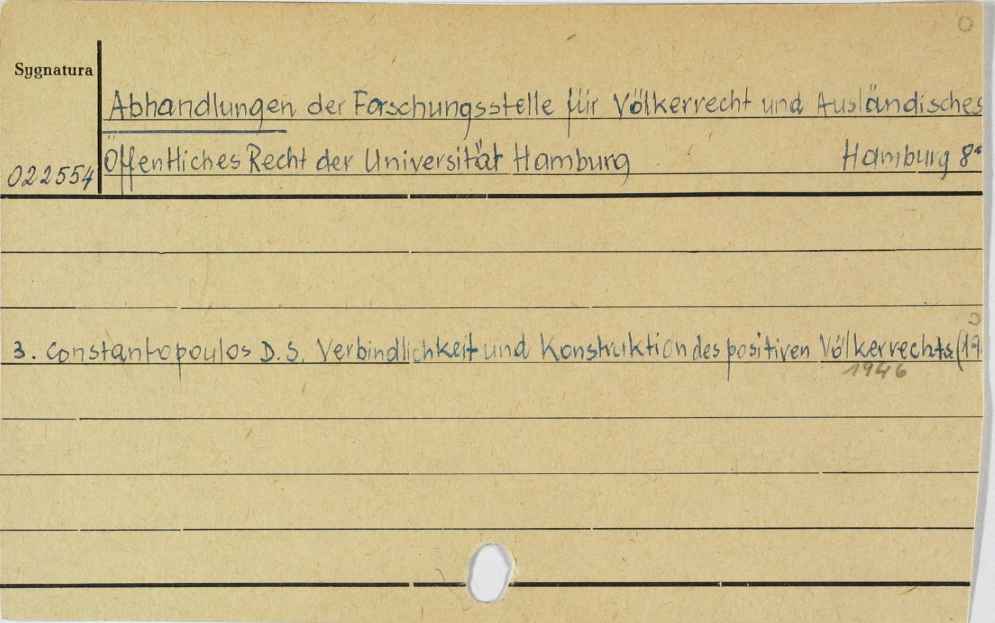 Sygnatura
Abhandlungen der Forschungsstelle für Völkerrecht und Ausländisches
022554 Öffentliches Recht der Universität Hamburg Hamburg 8°
3. Constantopoulos D.S. Verbindlichkeit und Konstruktion des positiven Völkerrechts (19
1946